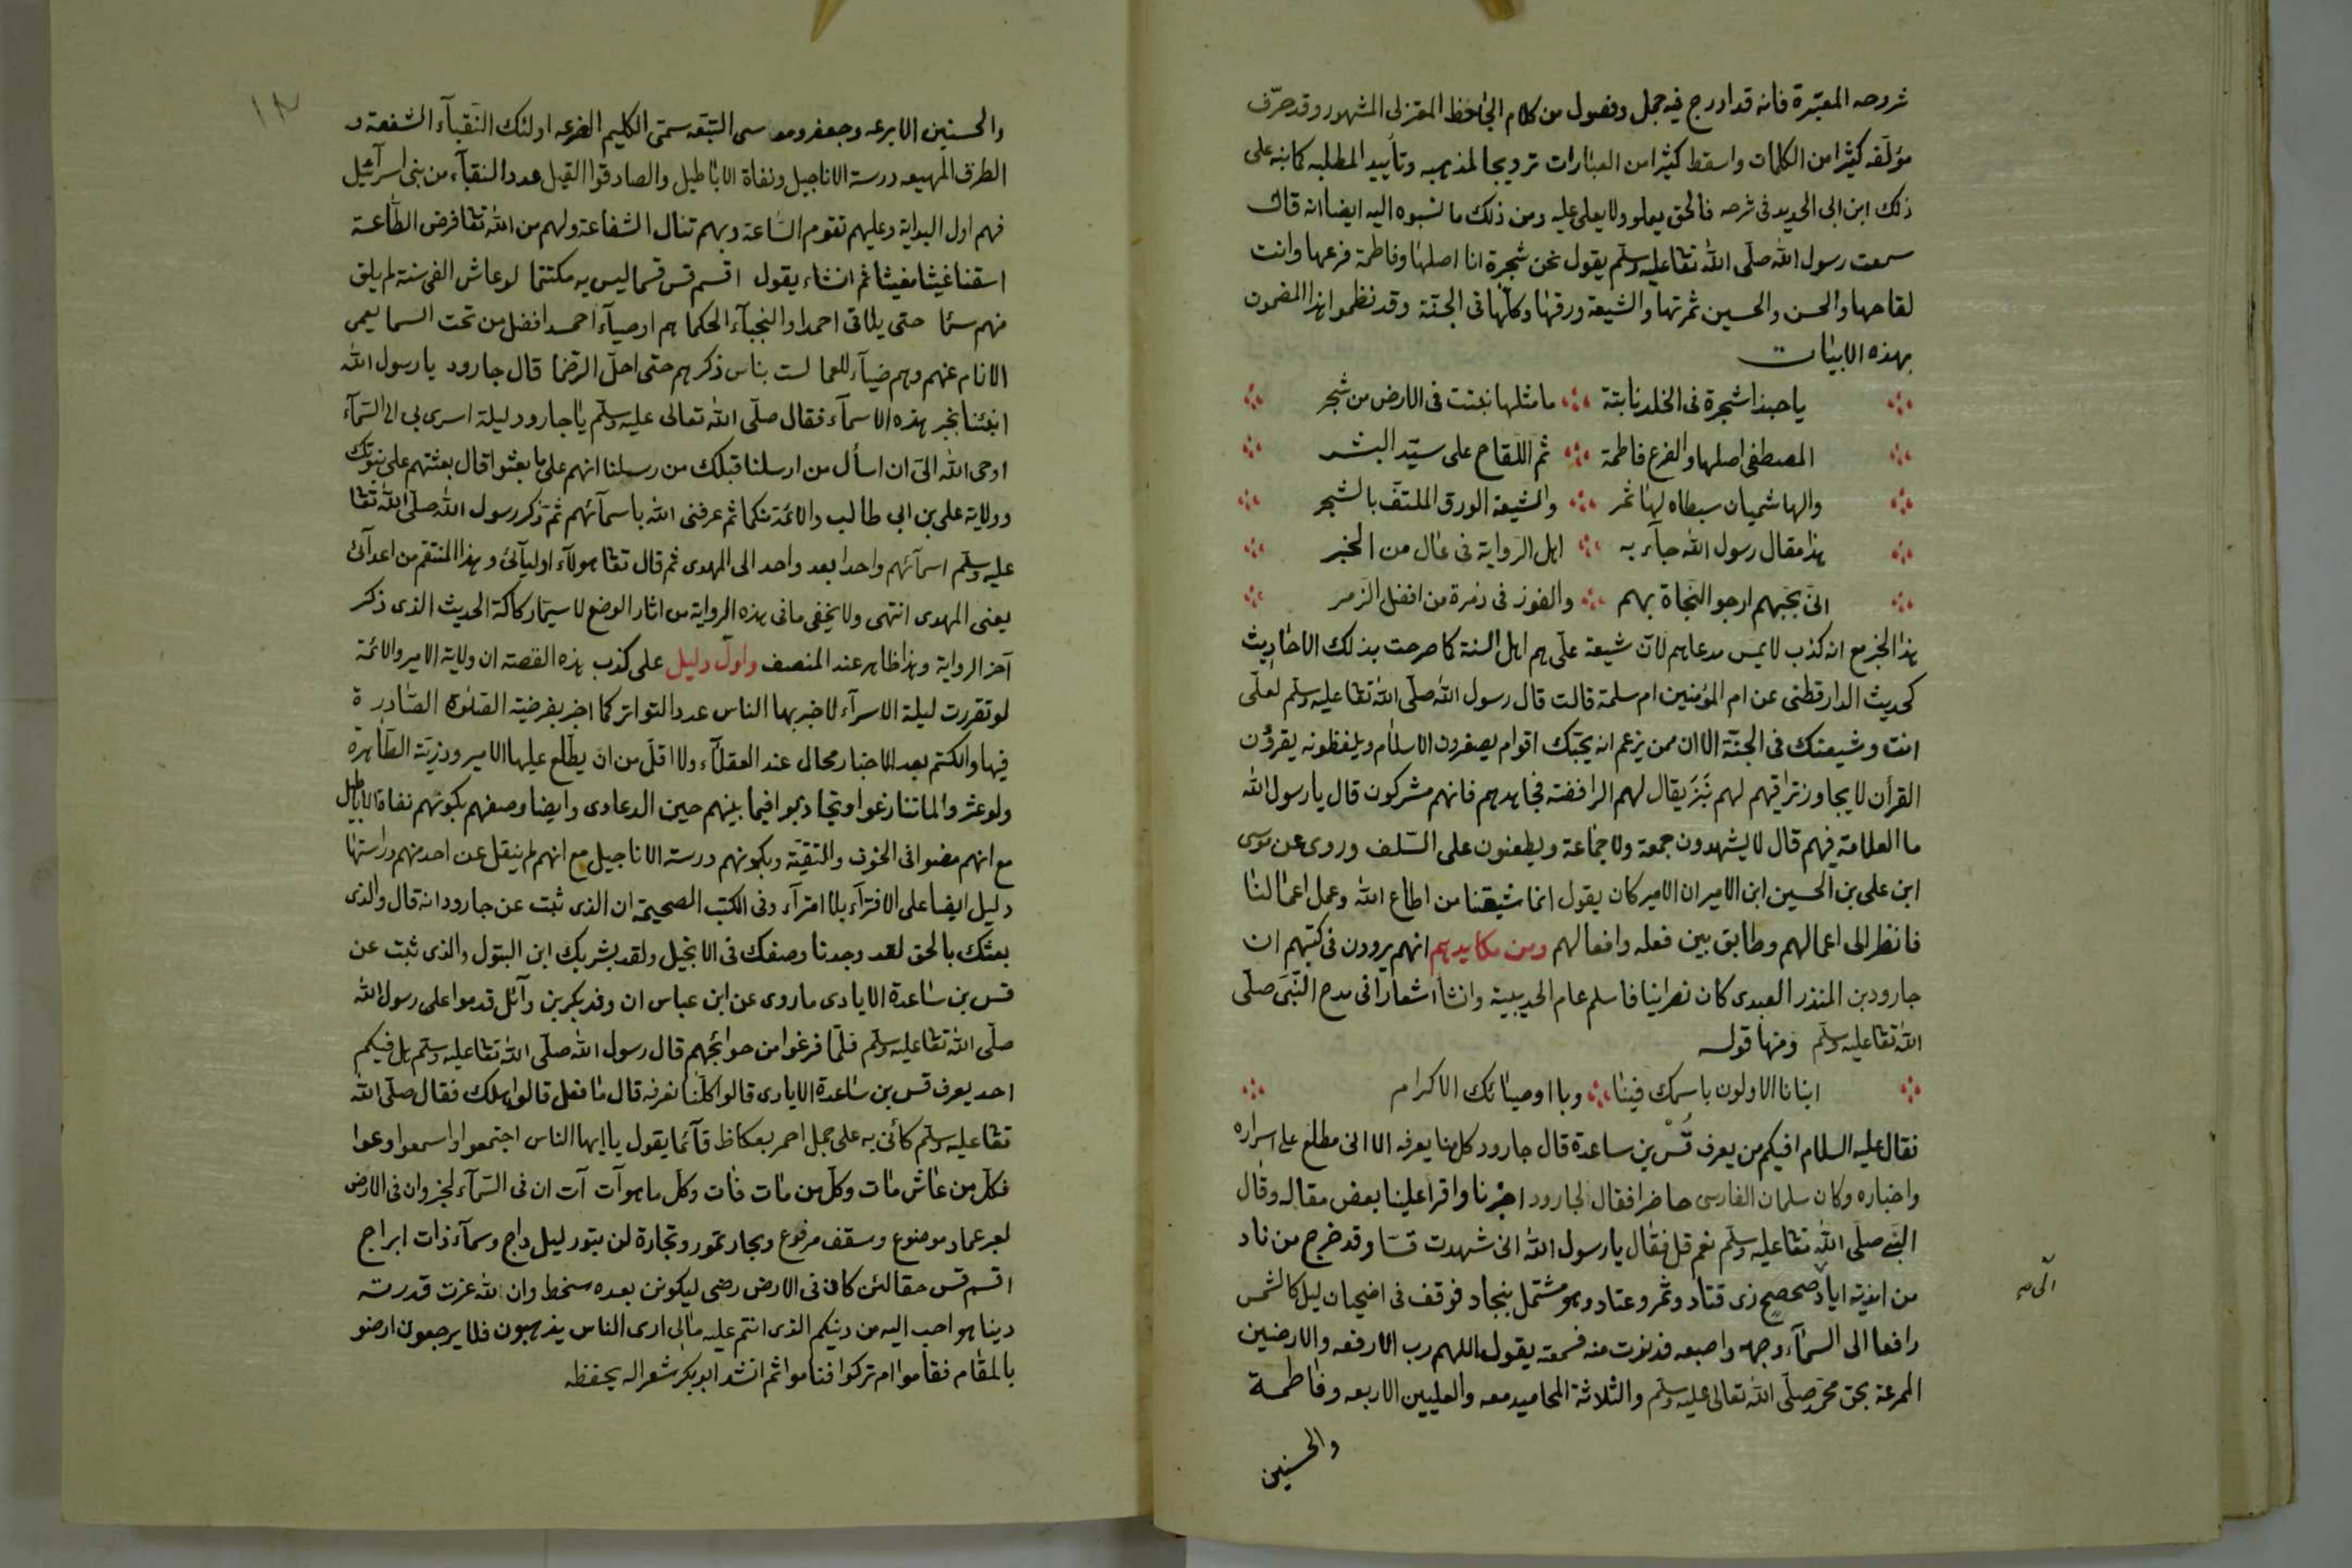 شروحه المعتبرة فانه قد ادرج فيه جمل وفصول من كلام الجاحظ المعتزلى المشهور وقد حرّف
مؤلفه كثيرا من الكلمات واسقط كثيرا من العبارات ترويجا لمذهبه وتأييد المطلبه كما نبه على
ذلك ابن ابى الحديد فى شرحه فالحق يعلو ولا يعلى عليه ومن ذلك ما نسبوه اليه ايضا انه قال
سمعت رسول الله صلّى الله تعا عليه وسلّم يقول نحن شجرة انا اصلها وفاطمة فرعها وانت
لقاحها والحسن والحسين ثمرتها والشيعة ورقها وكلّها فى الجنّة وقد نظموا هذا المضمون
بهذه الابيات
ياحبذا شجرة فى الخلد نابتة ما مثلها نبتت فى الارض من شجر
المصطفى اصلها والفرع فاطمة ثم اللّقاح على سيّد البشر
والهاشميان سبطاه لها ثمر والشيعة الورق الملتفّ بالشجر
هذا مقال رسول الله جآء به اهل الرواية فى عال من الخبر
انى بحبهم ارجو النجاة بهم والفوز فى زمرة من افضل الزمر
هذا الخبر مع انه كذب لا يمس مدعاهم لانّ شيعة علّى هم اهل السنة كما صرحت بذلك الاحاديث
كحديث الدارقطنى عن ام المؤمنين ام سلمة قالت قال رسول الله صلّى الله تعا عليه وسلّم لعلّى
انت وشيعتك فى الجنّة الا ان ممن يزعم انه يحبّك اقوام يصغرون الاسلام ويلفظونه يقرؤن
القرأن لا يجاوز تراقيهم لهم نَبَز يقال لهم الرافضة فجاهدهم فانهم مشركون قال يارسول الله
ما العلامة فيهم قال لا يشهدون جمعة ولا جماعة ويطعنون على السّلف وروى عن موسى
ابن على بن الحسين ابن الامير ان الامير كان يقول انما شيعتنا من اطاع الله وعمل اعمالنا
فانظر الى اعمالهم وطابق بين فعله وافعالهم ومن مكايدهم انهم يروون فى كتبهم ان
جارود بن المنذر العبدى كان نصرانيا فاسلم عام الحديبية وانشأ اشعارا فى مدح النّبى صلّى
الله تعا عليه وسلّم ومنها قوله
انبانا الاولون باسمك فينا وبااوصيائك الاكرام
فقال عليه السلام افيكم من يعرف قُسْ بن ساعدة قال جارود كل منا يعرفه الا انى مطلع على اسراره
واخباره وكان سلمان الفارسى حاضرا فقال لجارود اخبرنا واقرأ علينا بعض مقاله وقال
النّبى صلّى الله تعا عليه وسلّم نعم قل فقال يارسول الله انى شهدت قسّا وقد خرج من ناد
من اندية اياد صحصح ذى قتاد وثمر وعتاد وهو مشتمل بنجاد فوقف فى اضحيان ليل كالشمس
رافعا الى السمآء وجهه واصبعه فدنوت منه فسمعته يقول اللهم رب الارفعه والارضين
الممرعة بحق محمّد صلّى الله تعالى عليه وسلّم والثلاثة المحاميد معه والعليين الاربعه وفاطمة
والحسنين
والحسنين الابرعه وجعفر وموسى التبعه سمىّ الكليم الضرعه اولئك النّقبآء الشفعة و
الطرق المهيعه درسة الاناجيل ونفاة الاباطيل والصادقوا القيل عدد النقبآء من بنى اسرآئيل
فهم اول البداية وعليهم تقوم السّاعة وبهم تنال الشفاعة ولهم من الله تعا فرض الطّاعة
اسقنا غيثا مغيثا ثم انشاء يقول اقسم قس قسما ليس به مكتتما لو عاش الفى سنة لم يلق
منهم سئما حتى يلاقى احمدا والنجبآء الحكما هم اوصيآء احمد افضل من تحت السما يعمى
الانام عنهم وهم ضيآء للعما لست بناس ذكرهم حتى احلّ الرّضما قال جارود يا رسول الله
انبئنا بخبر هذه الاسمآء فقال صلّى الله تعالى عليه وسلّم يا جارود ليلة اسرى بى الى السّمآء
اوحى الله الىّ ان اسأل من ارسلنا قبلك من رسلنا انهم على ما بعثوا قال بعثتهم على نبوتك
وولاية على بن ابى طالب والائمة منكما ثم عرفنى الله باسمآئهم ثم ذكر رسول الله صلّى الله تعا
عليه وسلّم اسمآئهم واحدا بعد واحد الى المهدى ثم قال تعا هولآء اوليآئى وهذا المنتقم من اعدآئى
يعنى المهدى انتهى ولا يخفى ما فى هذه الرواية من اثار الوضع لا سيما ركاكة الحديث الذى ذكر
آخر الرواية وهذا ظاهر عند المنصف واول دليل على كذب هذه القصة ان ولاية الامير والائمة
لو تقررت ليلة الاسرآء لاخبر بها الناس عدد التواتر كما اخبر بفرضية الصّلوة الصّادرة
فيها والكتم بعد الاخبار محال عند العقلآء ولا اقلّ من ان يطّلع عليها الامير وذريّته الطّاهرة
ولو عثروا لما تنازعوا وتجاذبوا فيما بينهم حين الدعاوى وايضا وصفهم بكونهم نفاة الاباطيل
مع انهم مضوا فى الخوف والتّقيّة وبكونهم درسة الاناجيل مع انهم لم ينقل عن احد منهم دراستها
دليل ايضا على الافترآء بلا امترآء وفى الكتب الصحيحة ان الذى ثبت عن جارود انه قال والذى
بعثك بالحق لقد وجدنا وصفك فى الانجيل ولقد بشر بك ابن البتول والذى ثبت عن
قس بن ساعدة الايادى ما روى عن ابن عباس ان وفد بكر بن وآئل قدموا على رسول الله
صلّى الله تعا عليه وسلّم فلمّا فرغوا من حوائجهم قال رسول الله صلّى الله تعا عليه وسلّم هل فيكم
احد يعرف قس بن ساعدة الايادى قالوا كلّنا نعرفه قال ما فعل قالوا هلك فقال صلّى الله
تعا عليه وسلّم كأنى به على جمل احمر بعكاظ قآئما يقول يا ايها الناس اجتمعوا واسمعوا وعوا
فكلّ من عاش مات وكلّ من مات فات وكلّ ما هو آت آت ان فى السّمآء لخبر وان فى الارض
لعبر عماد موضوع وسقف مرفوع وبحار تمور وتجارة لن تبور ليل داج وسمآء ذات ابراج
اقسم قس حقا لئن كان فى الارض رضى ليكونن بعده سخط وان لله عزت قدرته
دينا هو احب اليه من دينكم الذى انتم عليه مالى ارى الناس يذهبون فلا يرجعون ارضو
بالمقام فقاموا ام تركوا فناموا ثم انشد ابوبكر شعرا له يحفظه